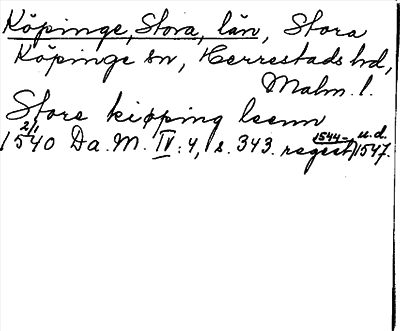 Köpinge, Stora, län, Stora
Köpinge sn, Herrestads hd,
Malm. l.
Store kiøpping leenn
2/1 1540 Da. M. IV: 4, s. 343. regest 1544-, u.d. 1547.